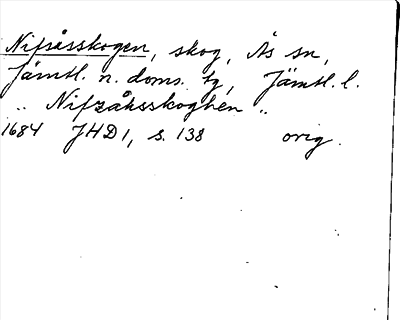 Nifsåsskogen, skog, Ås sn,
Jämtl. n. doms. tg, Jämtl. l.
„ Nifzåhsskoghen „
1684 JHD 1, s. 138 orig.